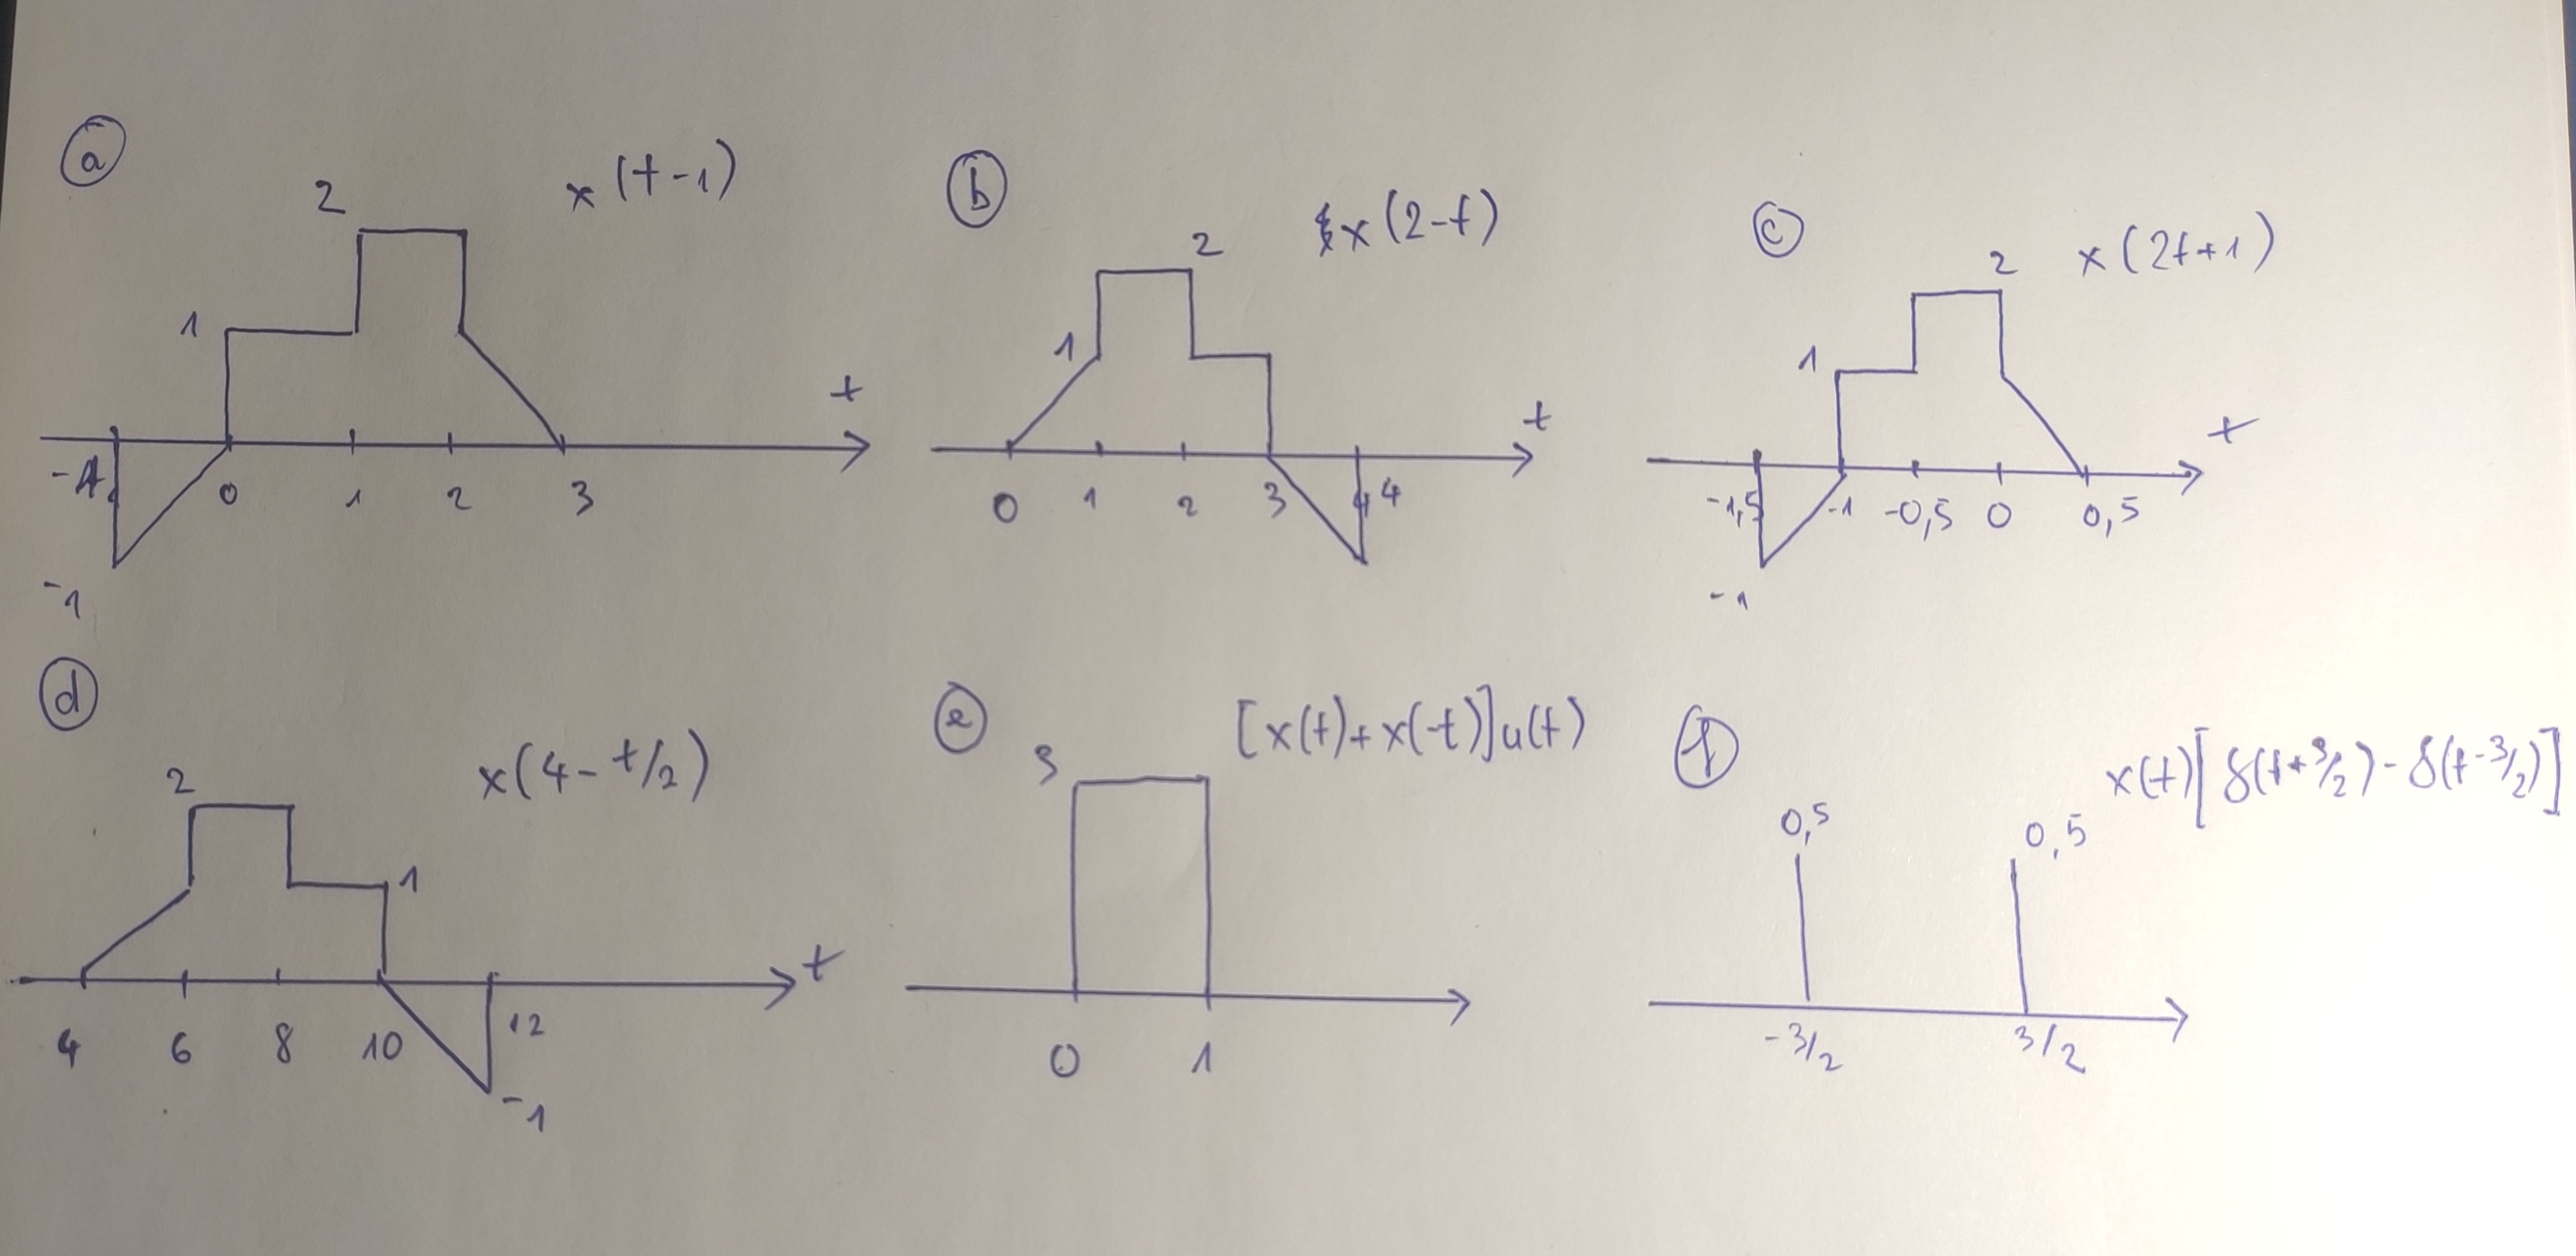 a
x(t-1)
2
1
t
-1
0
1
2
3
-1
b
x(2-t)
2
1
t
0
1
2
3
4
c
x(2t+1)
2
1
t
-1,5
-1
-0,5
0
0,5
-1
d
x(4-t/2)
2
1
t
4
6
8
10
12
-1
e
[x(t)+x(-t)]u(t)
3
0
1
f
x(t)[δ(t+3/2)-δ(t-3/2)]
0,5
0,5
-3/2
3/2